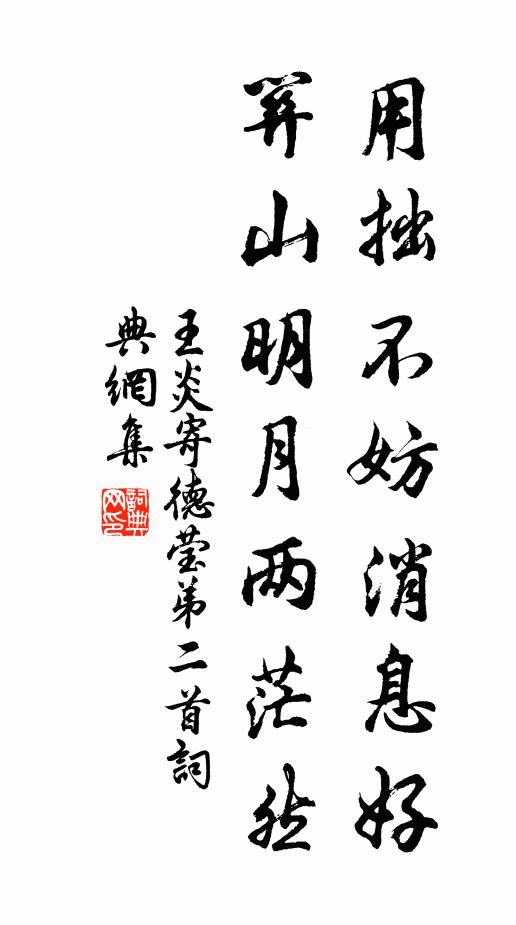 用拙不妨消息好
關山明月两茫然
王炎寄德莹弟二首詞
典網集
詞典
网印